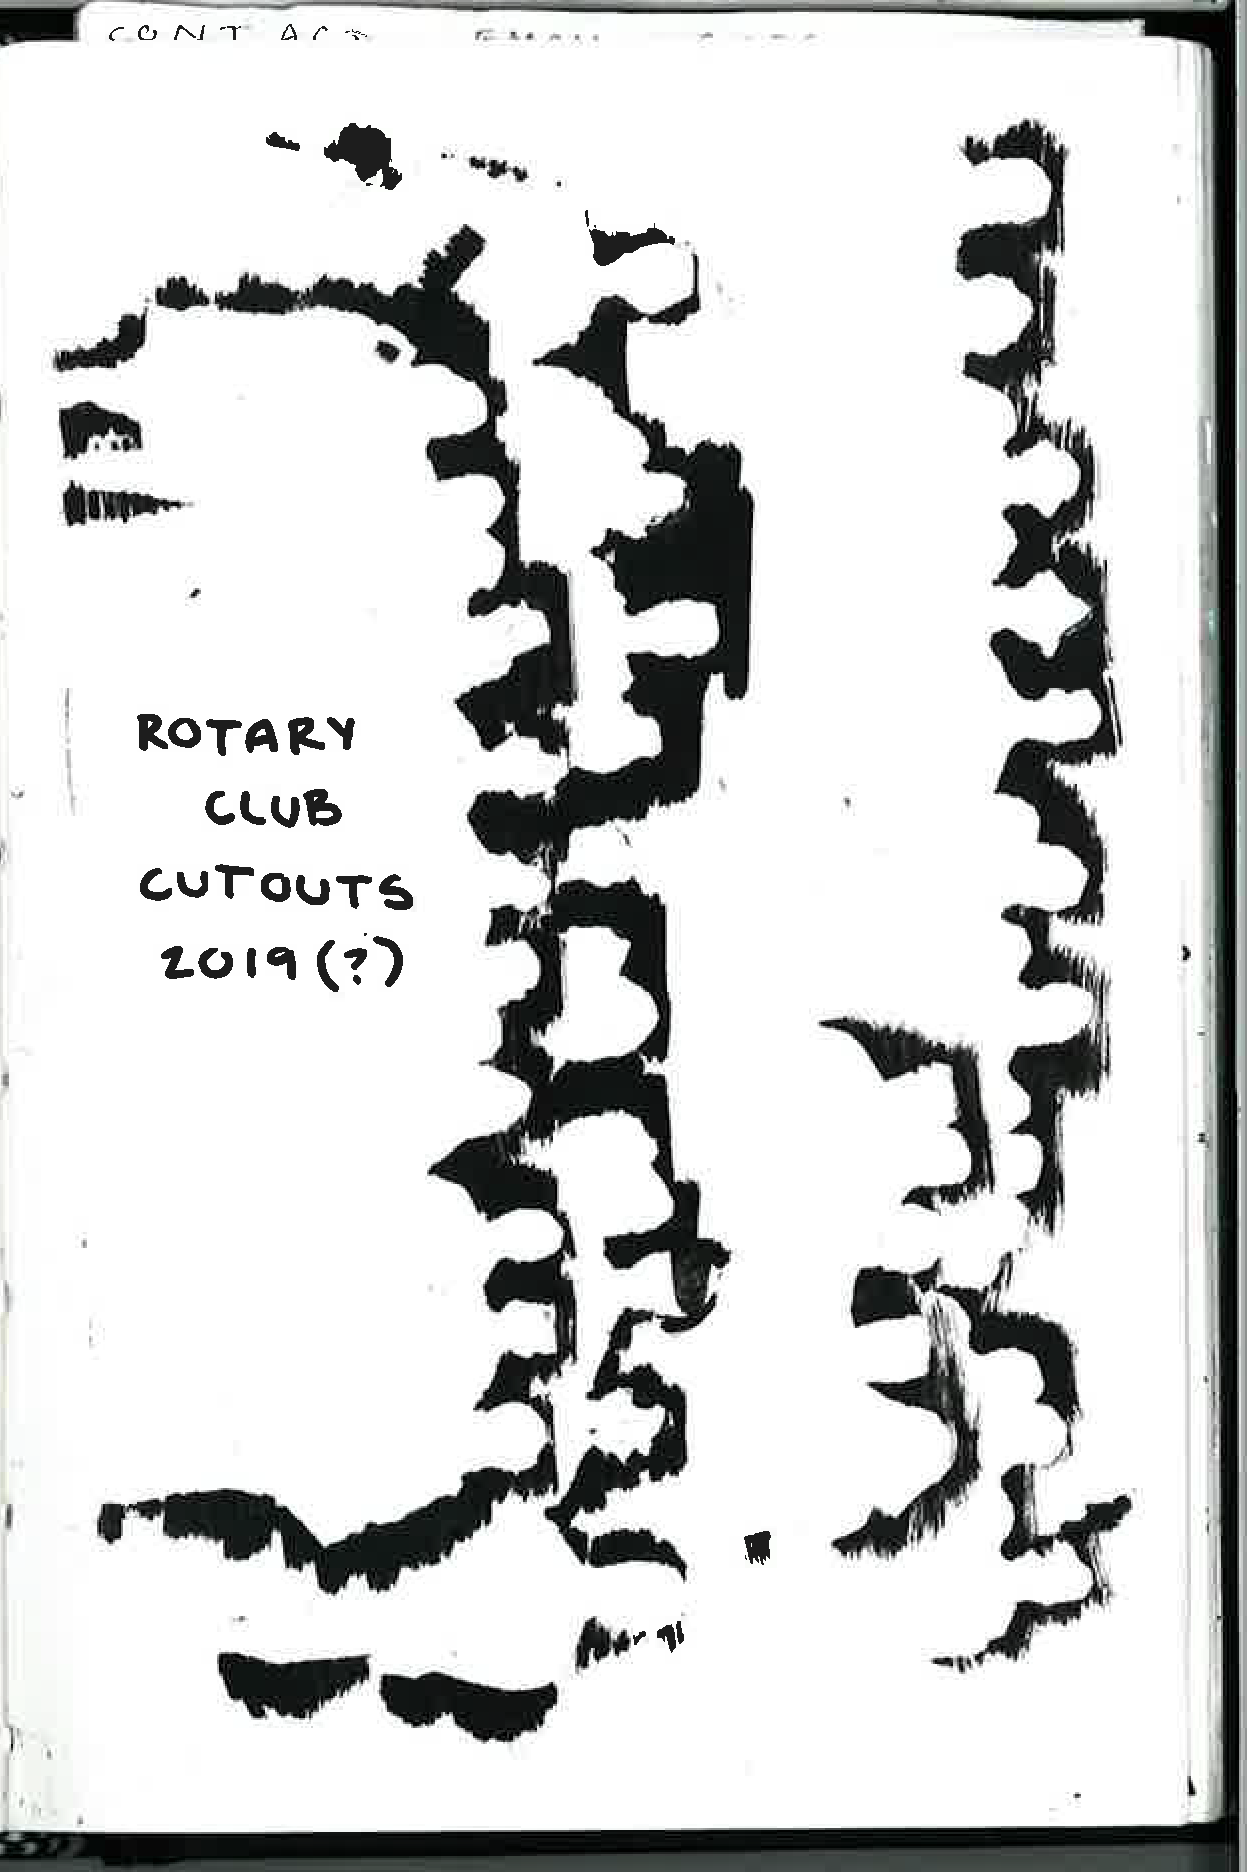 CONTACT
ROTARY
CLUB
CUTOUTS
2019(?)